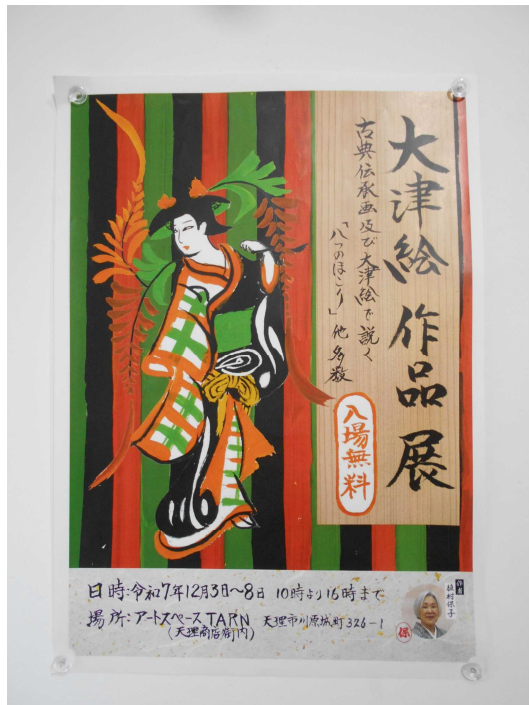 大津絵 作品 展
古典伝承画及び大津絵で説く
「八つのほこり」他多数
入場無料
日時:令和7年12月3日~8日 10時より16時まで
場所:アートスペースTARN 天理市川原城町326-1
(天理商店街内)
保